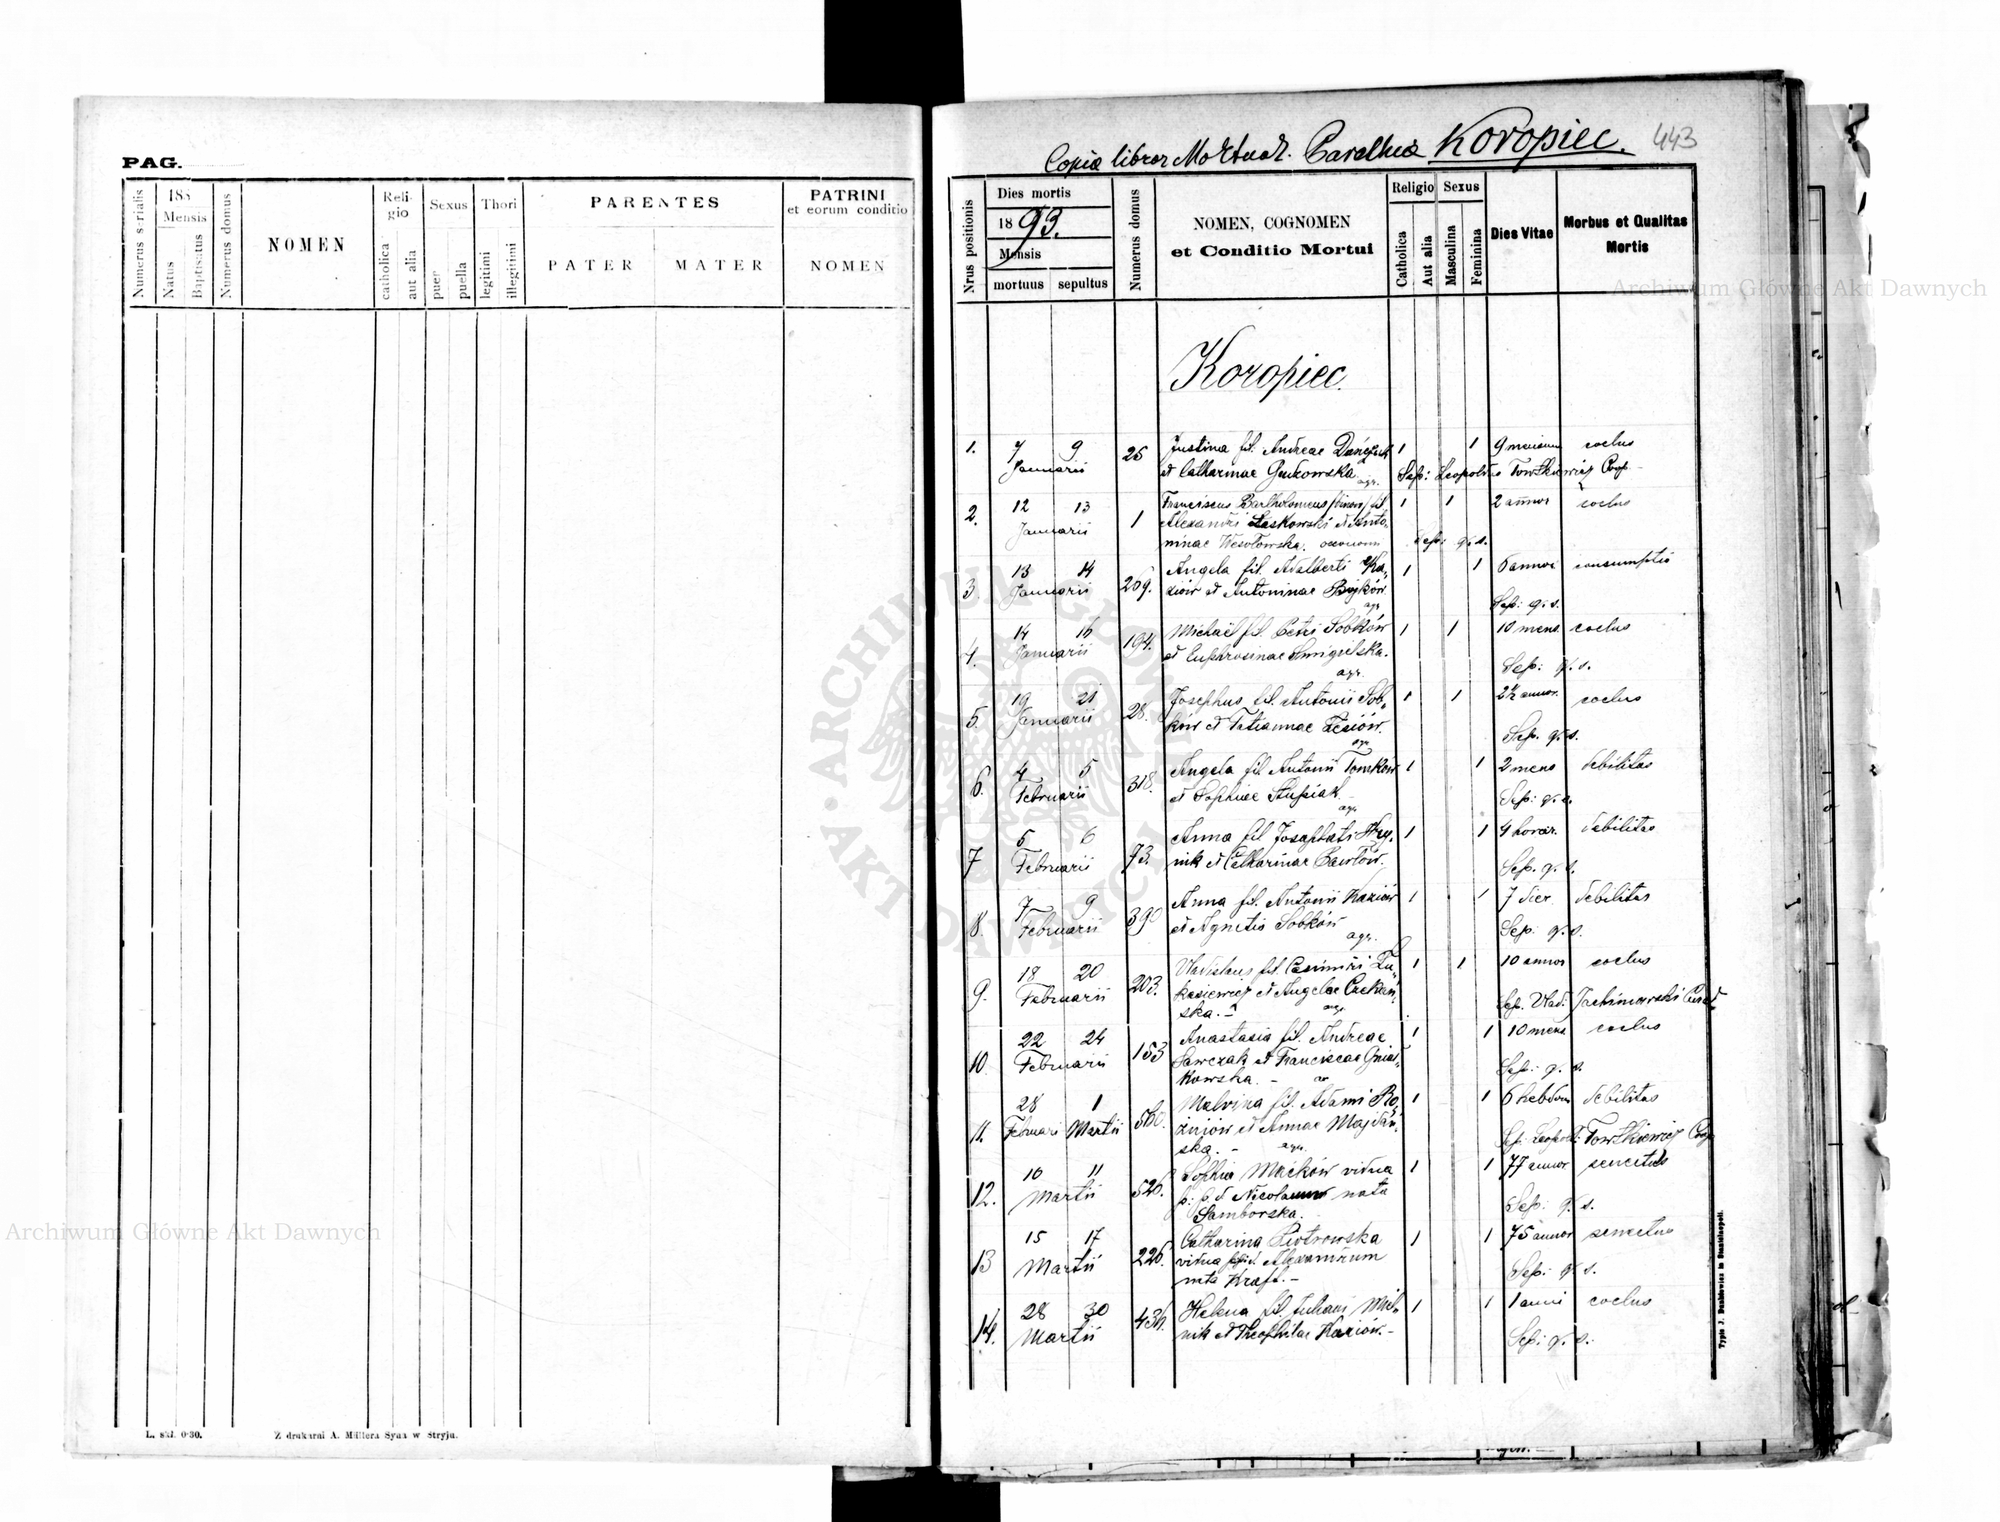 PAG.
Numerus serialis
188
Mensis
Natus
Baptisatus
Numerus domus
NOMEN
Religio
catholica
aut alia
Sexus
puer
puella
Thori
legitimi
illegitimi
PARENTES
PATER
MATER
PATRINI
et eorum conditio
NOMEN
L. skł. 0·30.
Z drukarni A. Müllera Syna w Stryju.
Copia libror Mortuor. Koropiec. 443
Nrus positionis
Dies mortis
1893.
Mensis
mortuus
sepultus
Numerus domus
NOMEN, COGNOMEN
et Conditio Mortui
Religio
Catholica
Aut alia
Sexus
Masculina
Feminina
Dies Vitae
Morbus et Qualitas
Mortis
Koropiec.
1. 7 9 Januarii 26 Justina fil. Andreae 1 1 9 mensium
et Catharinae agr. Sep: Leopoldus Coop
2. 12 13 Januarii 1 Franciscus Bartholomeus fil. 1 1 2 annor
Alexandri Laskowski et Anto-
ninae Wesołowska. Sep: q. s.
3. 13 14 Januarii 269. Angela fil. Adalberti Ka- 1 1 6 annor consumptio
ziów et Antoninae Bojków agr Sep: q. s.
4. 14 16 Januarii 194. Michaël fil. Petri Sobków 1 1 10 mens
et Euphrosinae Smigielska. agr. Sep: q. s.
5. 19 21 Januarii 28. Josephus fil. Antonii Sob- 1 1 2½ annor.
ków et Tatiannae agr Sep. q. s.
6. 4 5 Februarii 318. Angela fil. Antonii Tomków 1 1 2 mens debilitas
et Sophiae agr. Sep: q. s.
7 5 6 Februarii 93. Anna fil Josaphati Hry- 1 1 4 horar. debilitas
nik et Catharinae Pawłów. Sep. q. s.
8. 7 9 Februarii 390 Anna fil. Antonii Kaziów 1 1 7 dier. debilitas
et Agnetis Sobków agr. Sep: q. s.
9. 18 20 Februarii 203. Vladislaus fil. Casimiri Łu- 1 1 10 annor
kasiewicz et Angelae
ska. agr. Sep. Vlad.
10. 22 24 Februarii 153 Anastasia fil. Andreae 1 1 10 mens
Sawczak et Franciscae
kowska. Sep: q. s.
11. 28 1 Februari Martii 560. Malvina fil. Adami Ro- 1 1 6 hebdom debilitas
żniów et Annae Majdań-
ska. agr. Sep: Leopold: Coop
12. 10 11 Martii 526. Sophia Maćków vidua 1 1 77 annor senectus
p. d. Nicolaum nata
Samborska. Sep: q. s.
13 15 17 Martii 226. Catharina Piotrowska 1 1 75 annor senectus
vidua Alexandrum
nata Kraft. Sep: q. s.
14. 28 30 Martii 436. Helena fil. 1 1 1 anni
nik et Theophilae Kaziów. Sep: q. s.
Typis J. Dankiewicz in Stanislaopoli.
Archiwum Główne Akt Dawnych
Archiwum Główne Akt Dawnych
ARCHIWUM GŁÓWNE
AKT DAWNYCH